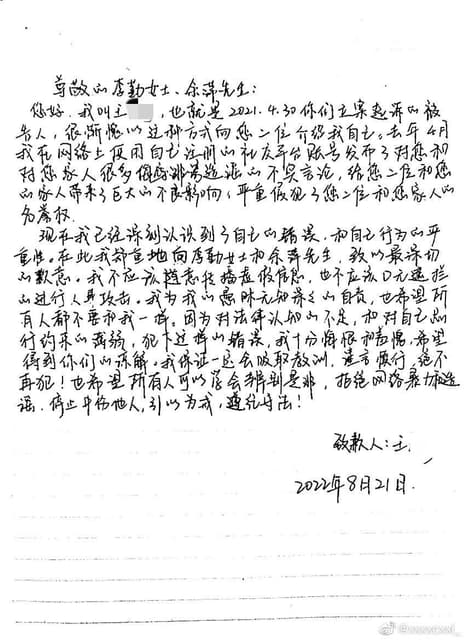 尊敬的李勤女士、余萍先生:
您好.我叫王 ,也就是2021.4.30你们立案起诉的被
告人,很惭愧以这种方式向您二位介绍我自己。去年4月
我在网络上使用自己注册的社交平台账号发布了对您和
对您家人很多侮辱诽谤造谣的不实言论,给您二位和您
的家人带来了巨大的不良影响,严重侵犯了您二位和您家人的
名誉权.
现在我已经深刻认识到了自己的错误,和自己行为的严
重性。在此我郑重地向李勤女士和余萍先生,致以最深切
的歉意。我不应该随意传播虚假信息,也不应该口无遮拦
的进行人身攻击。我为我的愚昧无知深深的自责,也希望所
有人都不要和我一样。因为对法律认知的不足,和对自己言
行约束的薄弱,犯下这样的错误,我十分悔恨和羞愧.希望
得到你们的谅解。我保证一定会吸取教训,谨言慎行,绝不
再犯!也希望所有人可以学会辨别是非,拒绝网络暴力和造
谣.停止中伤他人,引以为戒,遵纪守法!
致歉人:王.
2022年8月21日.